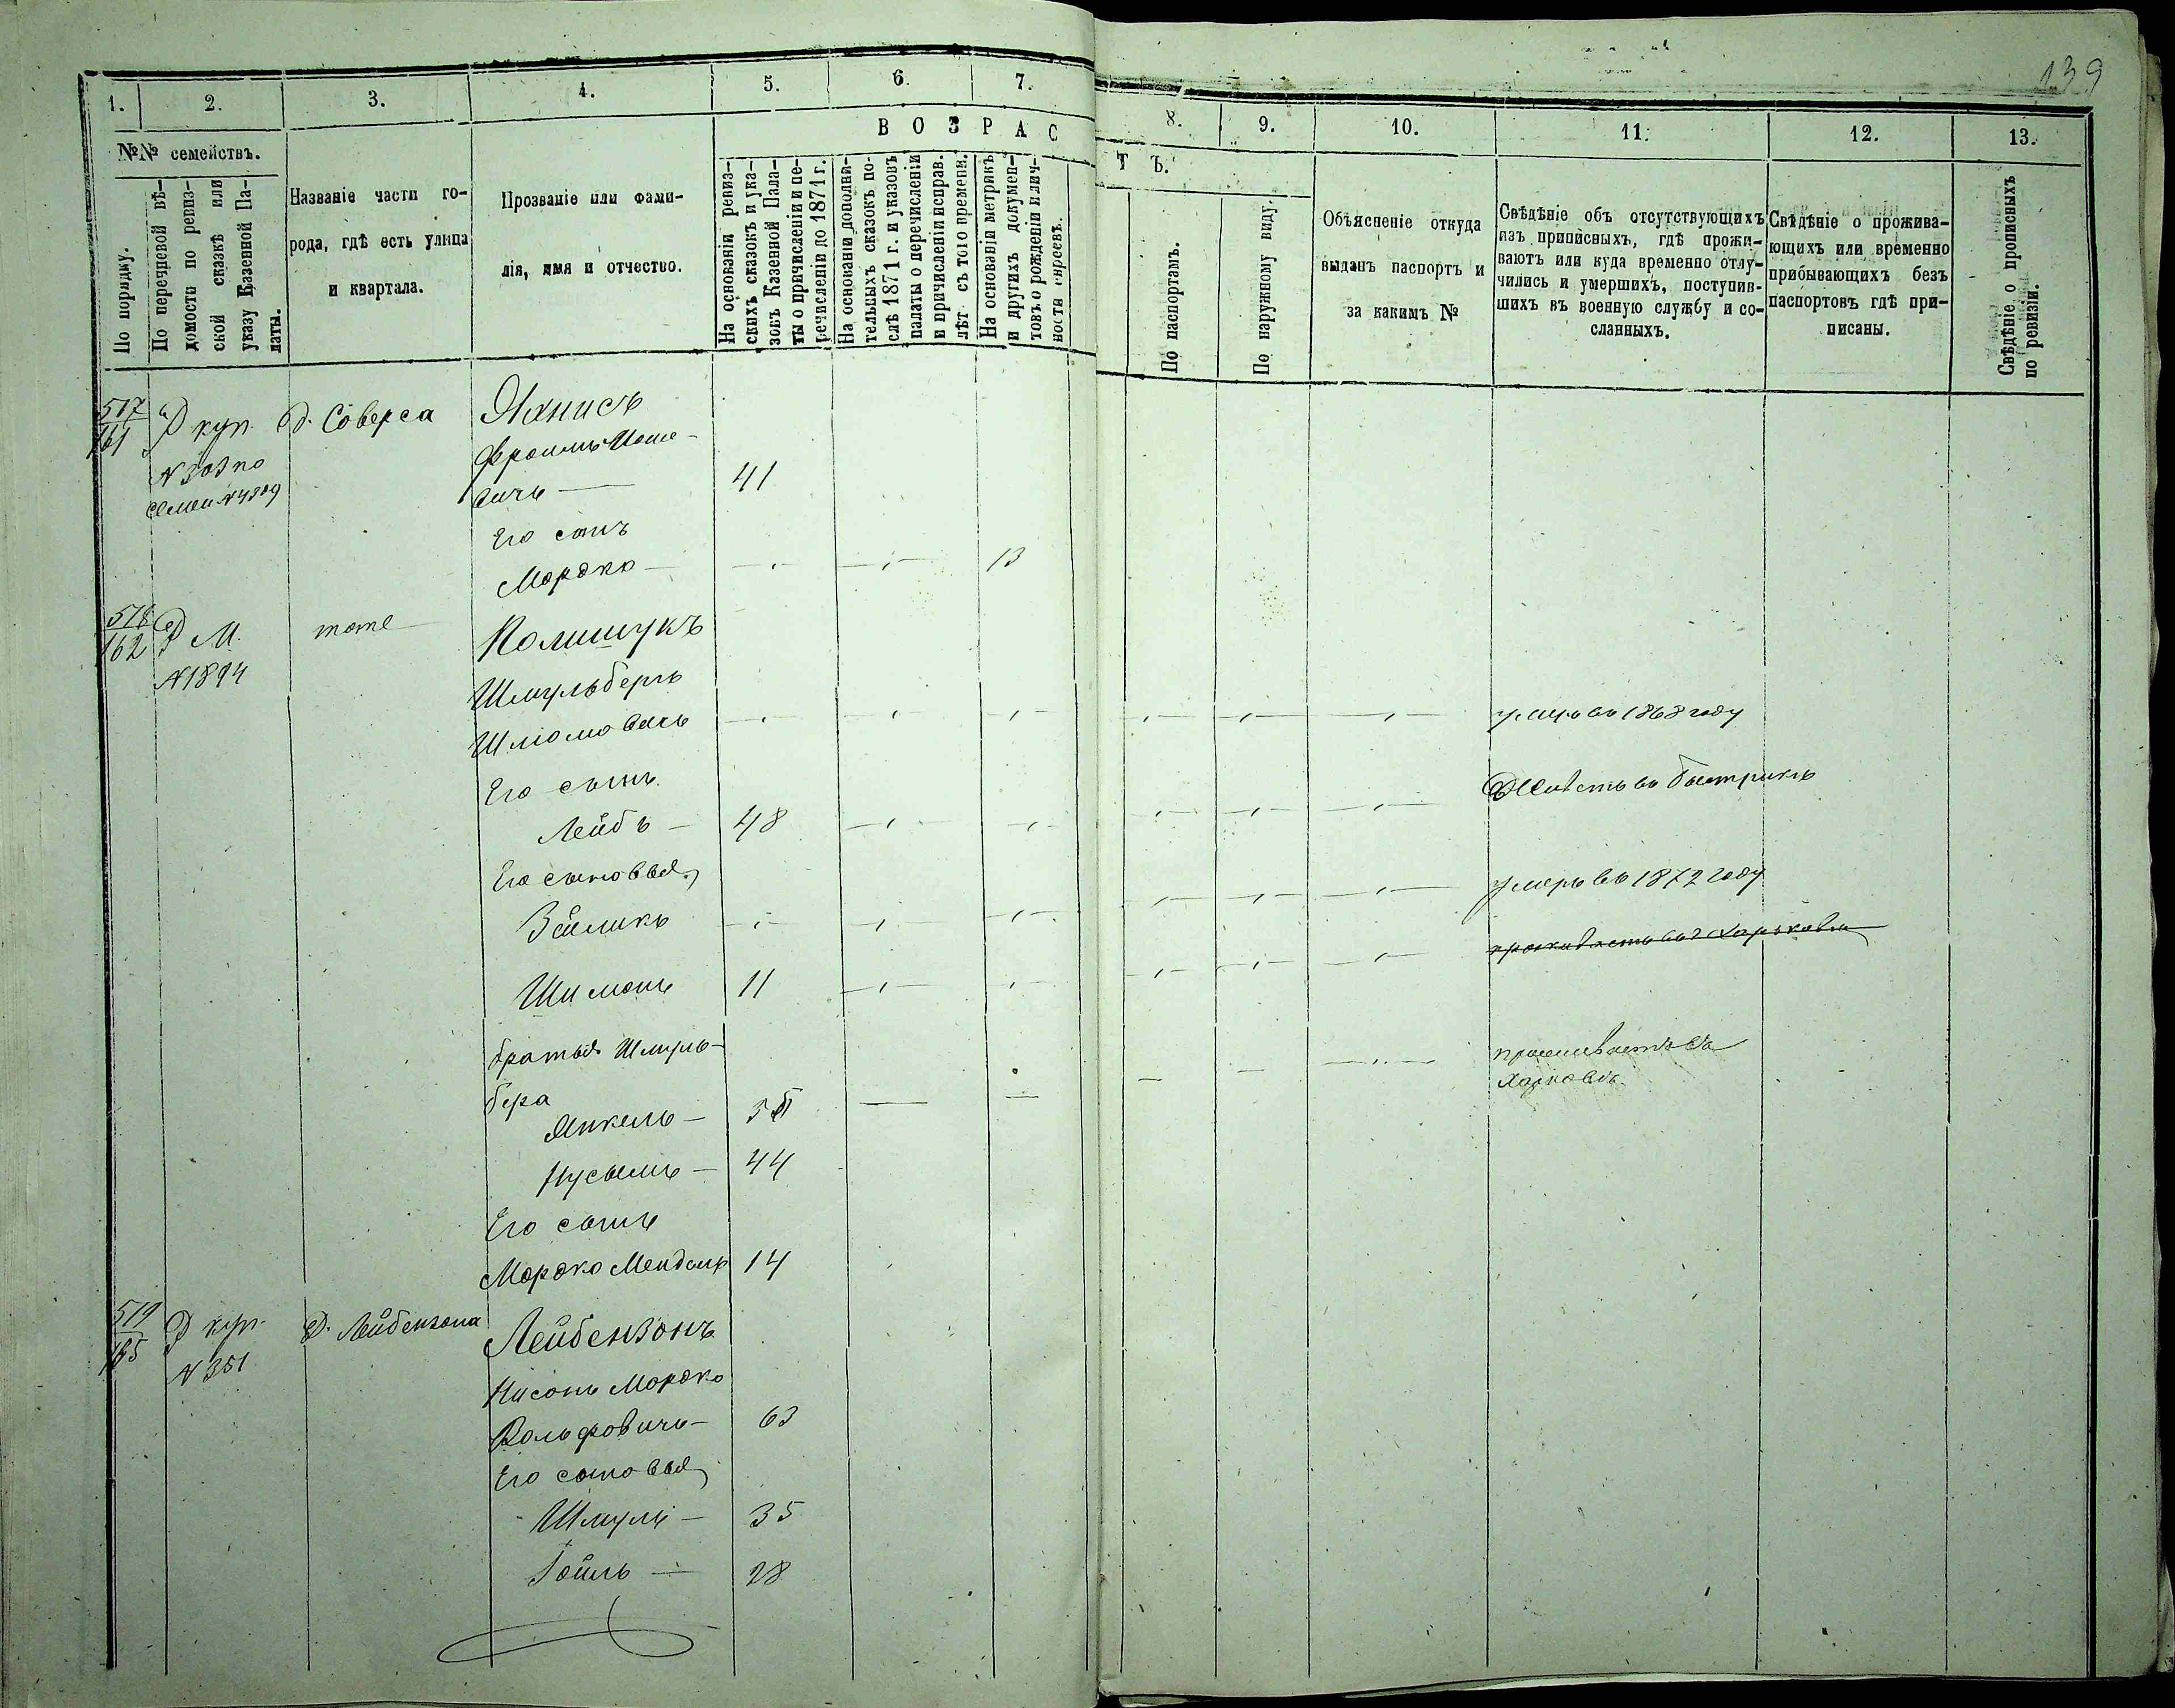 139
1. 2. 3. 4. 5. 6. 7. 8. 9. 10. 11. 12. 13.
№№ семействъ.
По порядку.
По перечневой вѣ-
домости по ревиз-
ской сказкѣ или
указу Казенной Па-
латы.
Названіе части го-
рода, гдѣ есть улица
и квартала.
Прозваніе или фами-
лія, имя и отчество.
ВОЗРАСТЪ.
На основаніи ревиз-
скихъ сказокъ и ука-
зовъ Казенной Пала-
ты о причисленіи и пе-
речисленіи до 1871 г.
На основаніи дополни-
тельныхъ сказокъ по-
слѣ 1871 г. и указовъ
палаты о перечисленіи
и причисленіи исправ.
лѣт- съ того времени.
На основаніи метрикъ
и другихъ докумен-
товъ о рожденіи и лич-
ности евреевъ.
По паспортамъ.
По наружному виду.
Объясненіе откуда
выданъ паспортъ и
за какимъ №
Свѣдѣніе объ отсутствующихъ
изъ приписныхъ, гдѣ прожи-
ваютъ или куда временно отлу-
чились и умершихъ, поступив-
шихъ въ военную службу и со-
сланныхъ.
Свѣдѣніе о прожива-
ющихъ или временно
прибывающихъ безъ
паспортовъ гдѣ при-
писаны.
Свѣдѣніе о прописныхъ
по ревизіи.
517 куп. д. Соверса Яхнисъ
161
N 303 по Фроимъ Моше-
вичъ — 41
Его сынъ
Мордко — 13
518 М. тоже Полищукъ
162
N 1894
Шмульберъ
Шліомовичъ умеръ въ 1868 году
Его сынъ
Лейбъ — 48 — —
Его сыновья
Зейликъ умеръ въ 1872 году
Шимонъ 11 проживаетъ въ Харьковѣ
братья Шмуль-
бера проживаетъ въ
Харьковѣ
Янкель —
Нусымъ — 44
Его сынъ
Мордко Мендель 14
519 куп. д. Лейбензона Лейбензонъ
165
N 351
Нисонъ Мордко
Вольфовичъ — 63
Его сыновья
Шмуль — 35
Гойль — 28